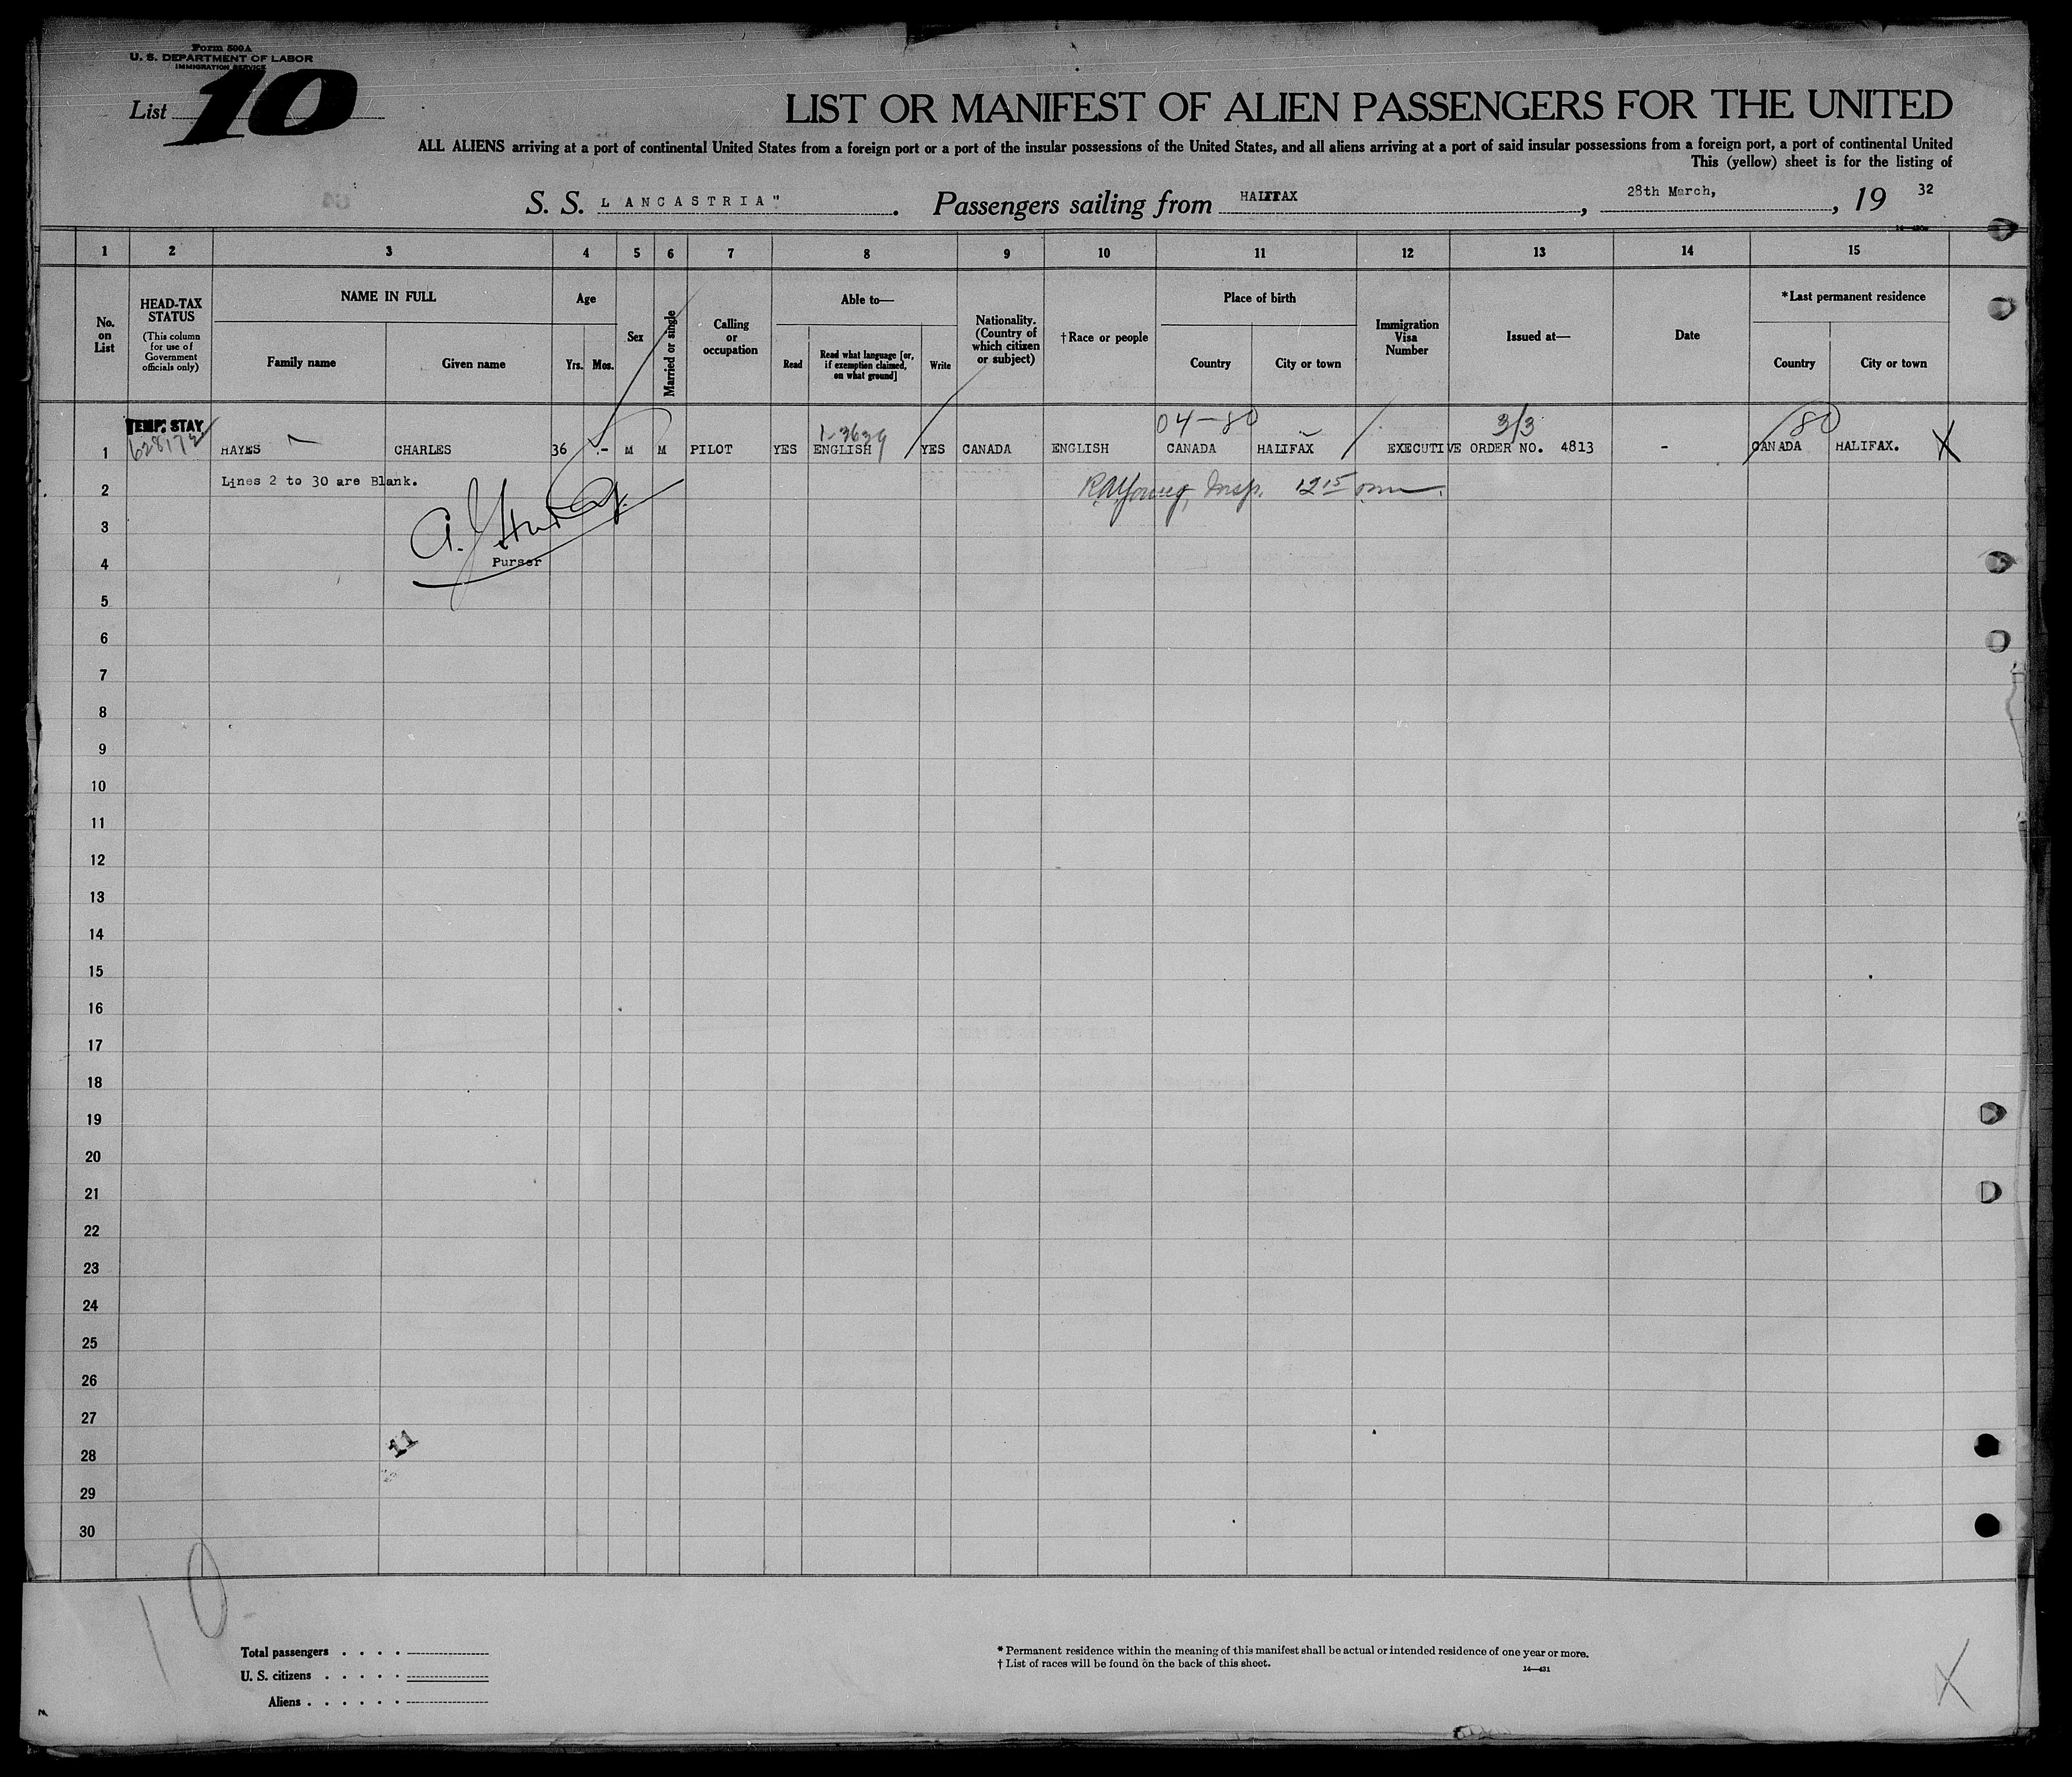 Form 500A
U. S. DEPARTMENT OF LABOR
IMMIGRATION SERVICE
List 10
LIST OR MANIFEST OF ALIEN PASSENGERS FOR THE UNITED
ALL ALIENS arriving at a port of continental United States from a foreign port or a port of the insular possessions of the United States, and all aliens arriving at a port of said insular possessions from a foreign port, a port of continental United
This (yellow) sheet is for the listing of
S. S. LANCASTRIA" . Passengers sailing from HALIFAX , 28th March, , 19 32
1 2 3 4 5 6 7 8 9 10 11 12 13 14 15
No. on List
HEAD-TAX STATUS
(This column for use of Government officials only)
NAME IN FULL
Family name Given name
Age
Yrs. Mos.
Sex
Married or single
Calling or occupation
Able to—
Read
Read what language [or, if exemption claimed, on what ground]
Write
Nationality. (Country of which citizen or subject)
†Race or people
Place of birth
Country City or town
Immigration Visa Number
Issued at—
Date
*Last permanent residence
Country City or town
TEMP. STAY 04-80 3/3 80
1 HAYES CHARLES 36 - M M PILOT YES ENGLISH YES CANADA ENGLISH CANADA HALIFAX EXECUTIVE ORDER NO. 4813 - CANADA HALIFAX. X
2 Lines 2 to 30 are Blank. Insp. 12 15
3
4 Purser
5
6
7
8
9
10
11
12
13
14
15
16
17
18
19
20
21
22
23
24
25
26
27
11
28
29
30
10
Total passengers . . . .
U. S. citizens . . . . .
Aliens . . . . . .
* Permanent residence within the meaning of this manifest shall be actual or intended residence of one year or more.
† List of races will be found on the back of this sheet.
14—431
X